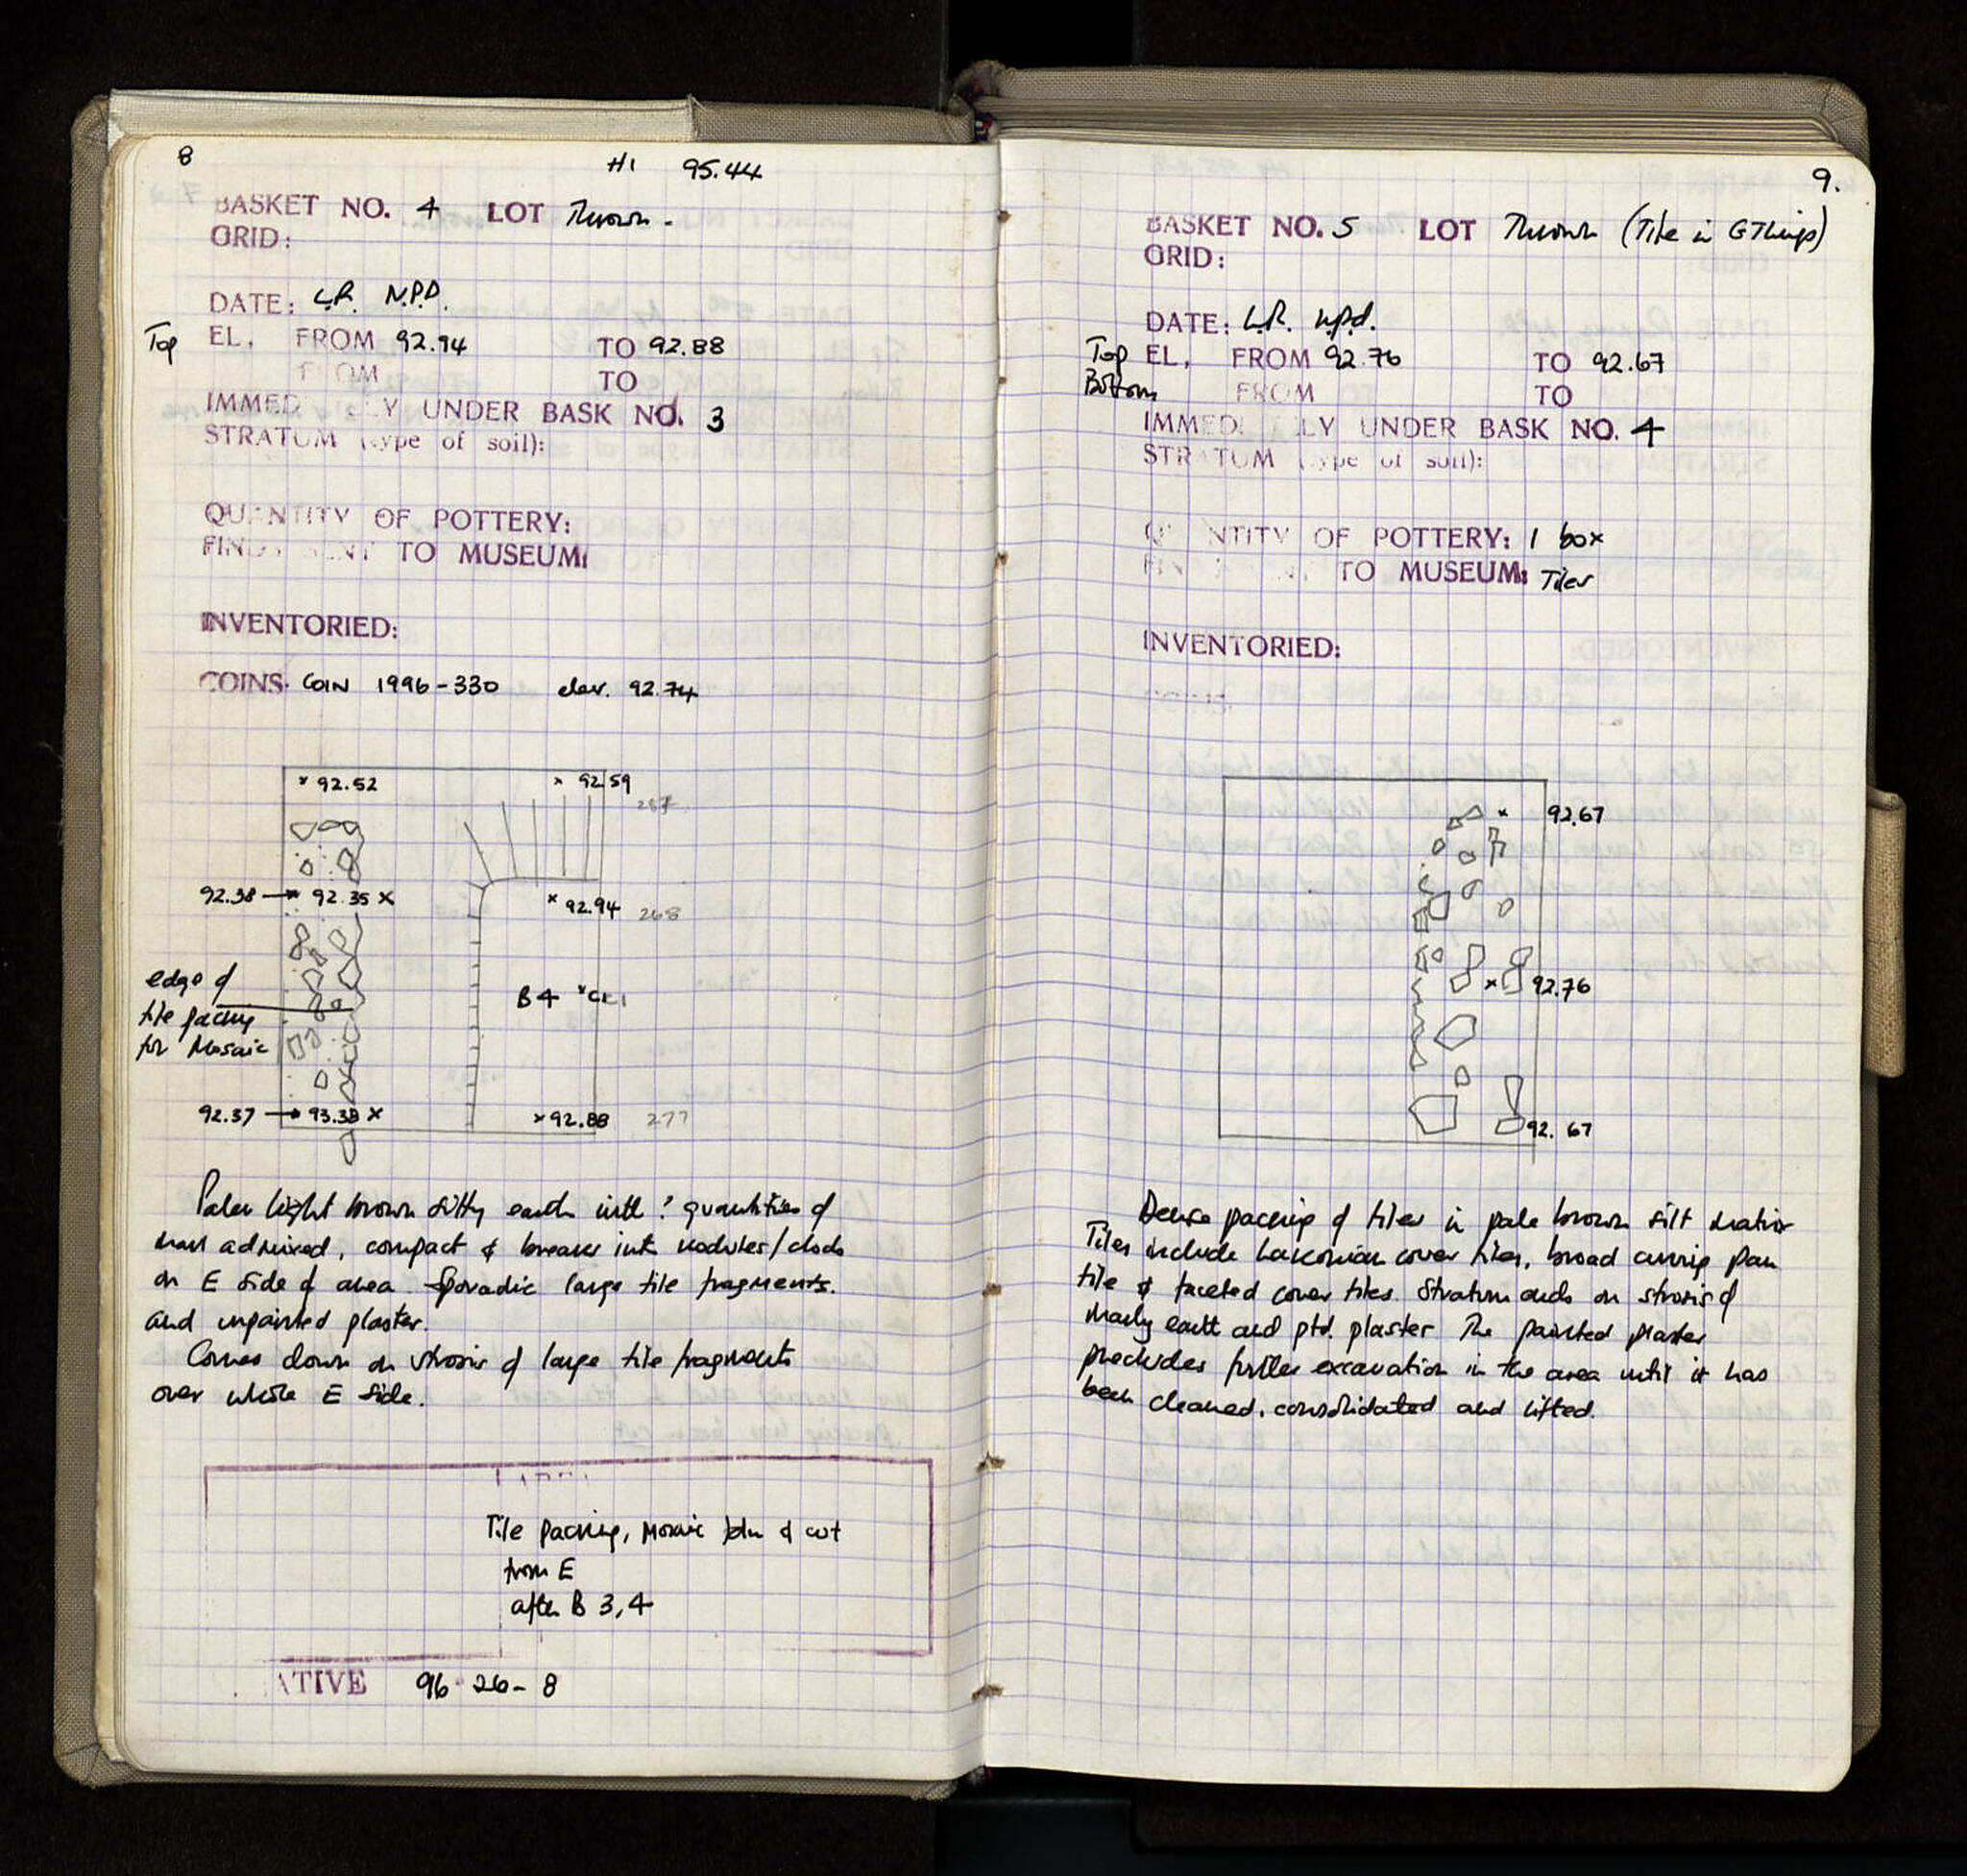 8
HI 95.44
BASKET NO. 4 LOT Thrown.
GRID:
DATE: L.R. N.P.D.
Top EL, FROM 92.94 TO 92.88
FROM TO
IMMED Y UNDER BASK NO. 3
STRATUM (type of soil):
QUANTITY OF POTTERY:
FIND SENT TO MUSEUM:
INVENTORIED:
COINS. COIN 1996-330 elev. 92.74
x 92.52 x 92.59
287
92.38 → x 92.35 x
x 92.94 268
edge of
tile packing
for Mosaic
B4
92.37 → 93.38 x x 92.88 277
Paler light brown silty earth with ? quantities of
marl admixed, compact & breaks into nodules/clods
on E side of area. Sporadic large tile fragments.
and unpainted plaster.
Comes down on strosis of large tile fragments
over whole E side.
Tile packing, Mosaic fdn & cut
from E
after B 3,4
ATIVE 96-26-8
9.
BASKET NO. 5 LOT Thrown (Tile in G Things)
GRID:
DATE: L.R. n.p.d.
Top EL, FROM 92.76 TO 92.67
Bottom FROM TO
IMMEDI LY UNDER BASK NO. 4
STRATUM (type of soil):
QUANTITY OF POTTERY: 1 box
TO MUSEUM: Tiles
INVENTORIED:
COINS.
x 92.67
x 92.76
92.67
Dense packing of tiles in pale brown silt matrix
Tiles include Lakonian cover tiles, broad curving pan
tile & faceted cover tiles. Stratum ends on strosis of
marly earth and ptd. plaster The painted plaster
precludes further excavation in the area until it has
been cleaned, consolidated and lifted.